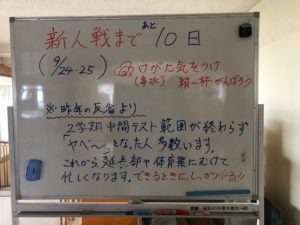 あと
新人戦まで 10日
(9/24·25)
けがに気をつけ
(事故) 精一杯がんばろう
※昨年の反省より
2学期中間テスト範囲が終わらず
"ヤベ〜"となった人多数います。
これから 文化部や体育祭にむけて
忙しくなります。できるときに、しっかりべる!!